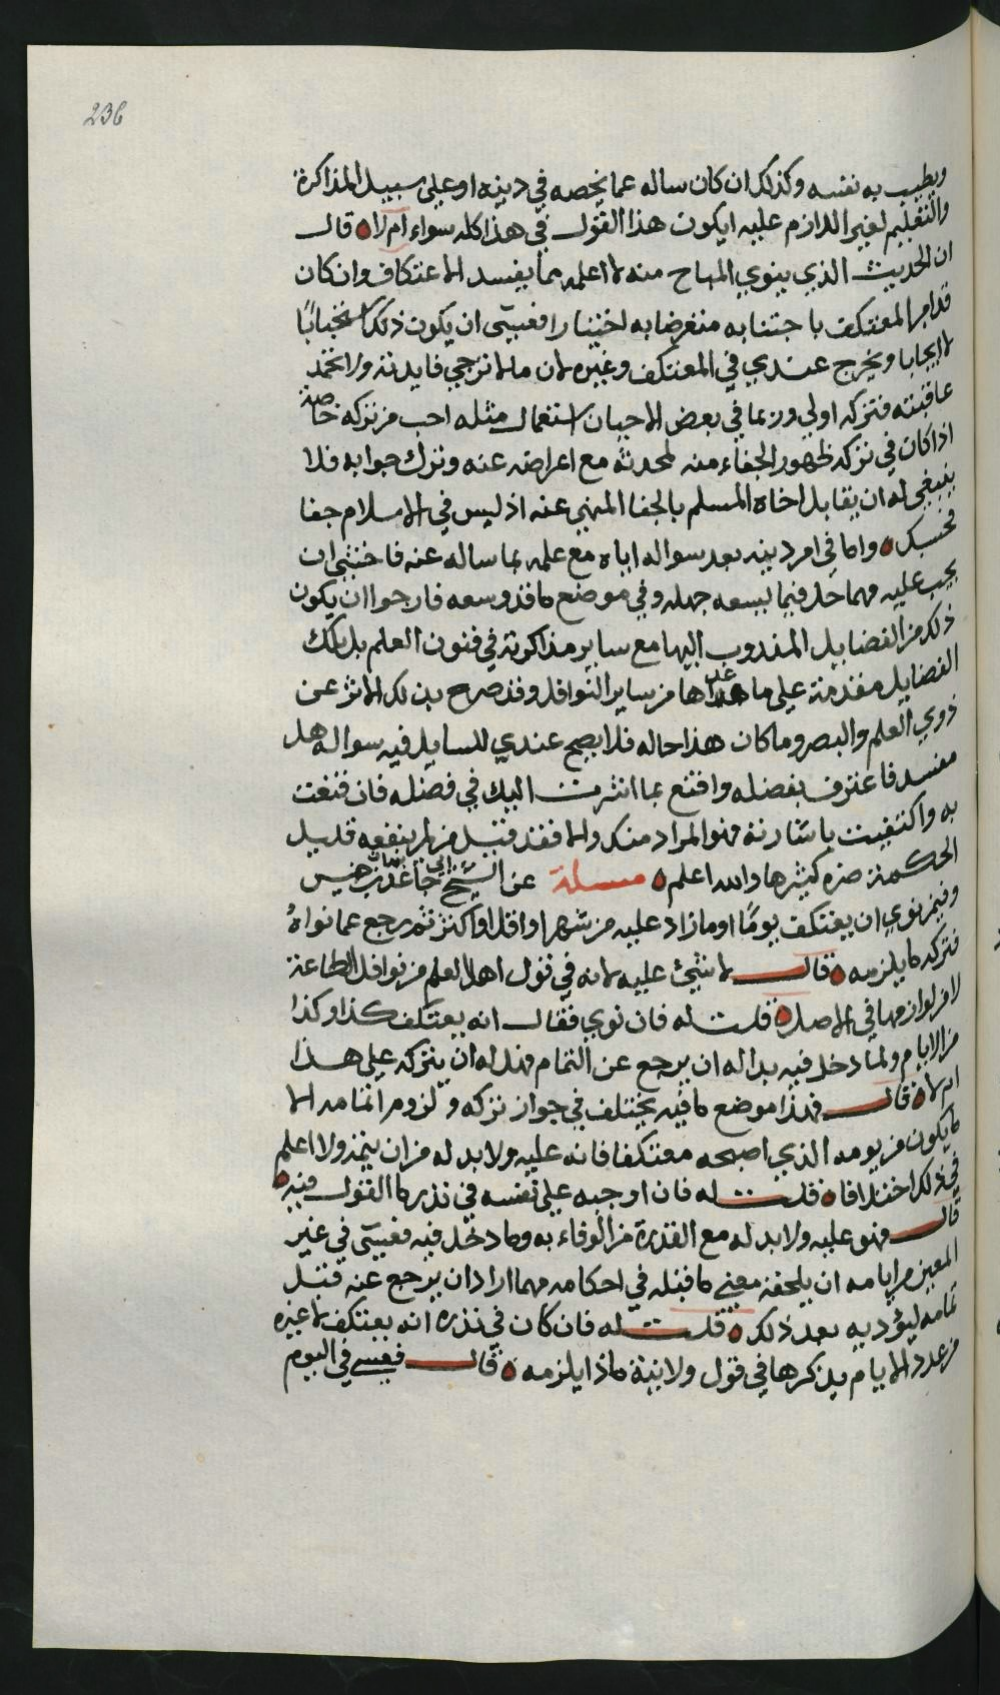 236
ويطيب به نفسه وكذلك ان كان ساله عما يخصه في دينه او على سبيل المذاكرة
والتعليم لغير اللازم عليه ايكون هذا القول في هذا كله سواء ام لا قال
ان الحديث الذي ينوي المباح منه لا اعلمه مما يفسد الاعتكاف وان كان
قد امر المعتكف باجتنابه متعرضا به اختيارا فعسى ان يكون ذلك استحبابًا
لا ايجابا ويخرج عندي في المعتكف وغيره لان ما لا ترجي فايدته ولا تحمد
عاقبته فتركه اولى وربما في بعض الاحيان استعمال مثله احب من تركه خاصة
اذا كان في تركه ظهور الجفاء منه لمحدثه مع اعراضه عنه وترك جوابه فلا
ينبغي له ان يقابل اخاه المسلم بالجفا المنهي عنه اذ ليس في الاسلام جفا
فحسبك واما في امر دينه بعد سواله اياه مع علمه بما ساله عنه فاخشى ان
يجب عليه مهما حل فيما ليسعه جهله وفي موضع ما قد وسعه فارجوا ان يكون
ذلك من الفضايل المندوب اليها مع ساير مذاكرته في فنون العلم بل تلك
الفضايل مقدمة على ما عداها من ساير النوافل وقد صرح بذلك الاثر عن
ذوي العلم والبصر وما كان هذا حاله فلا يصح عندي للسايل فيه سواله هل
مفسد فاعترف بفضله واقنع بما اشرت اليك في فضله فان قنعت
به واكتفيت باشارته فهو المراد منك والا فقد قيل من لم ينفعه قليل
الحكمة ضره كثيرها والله اعلم مسلة عن الشيخ جاعد بن خميس
وفيمن نوى ان يعتكف يومًا او ما زاد عليه من شهر او اقل او اكثر ثم رجع عما نواه
فتركه ما يلزمه قال لا شيء عليه لانه في قول اهل العلم من نوافل الطاعة
لا من لوازمها في الاصل قلت له فان نوى فقال انه يعتكف كذا وكذا
من الايام ولما دخل فيه بدا له ان يرجع عن التمام فهل له ان يتركه على هذا
ام لا قال فهذا موضع ما فيه يختلف في جواز تركه ولزوم اتمامه الا
ما يكون من يومه الذي اصبحه معتكفا فانه عليه ولا بد له من ان يتمه ولا اعلم
في ذلك اختلافا قلت له فان اوجبه على نفسه في نذر ما القول فيه
قال فهو عليه ولا بد له مع القدرة من الوفاء به وما دخل فيه فعسى في غير
المعين من ايامه ان يلحقه معنى ما قبله في احكامه مهما اراد ان يرجع عنه قبل
تمامه ليؤديه بعد ذلك قلت له فان كان في نذره انه يعتكف لا غيره
من عدد الايام يذكرها في قول ولا نية ماذا يلزمه قال فعسى في اليوم